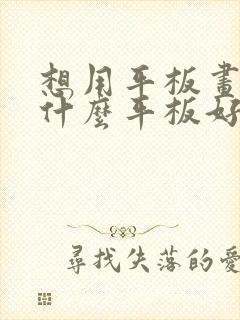 想用平板畫
什麼平板好
尋找失落的愛